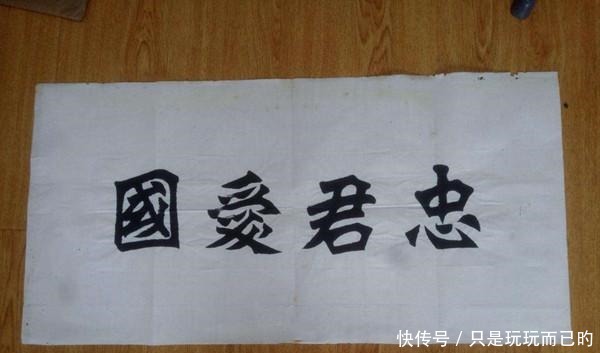 忠君愛國
快传号／只是玩玩而已旳